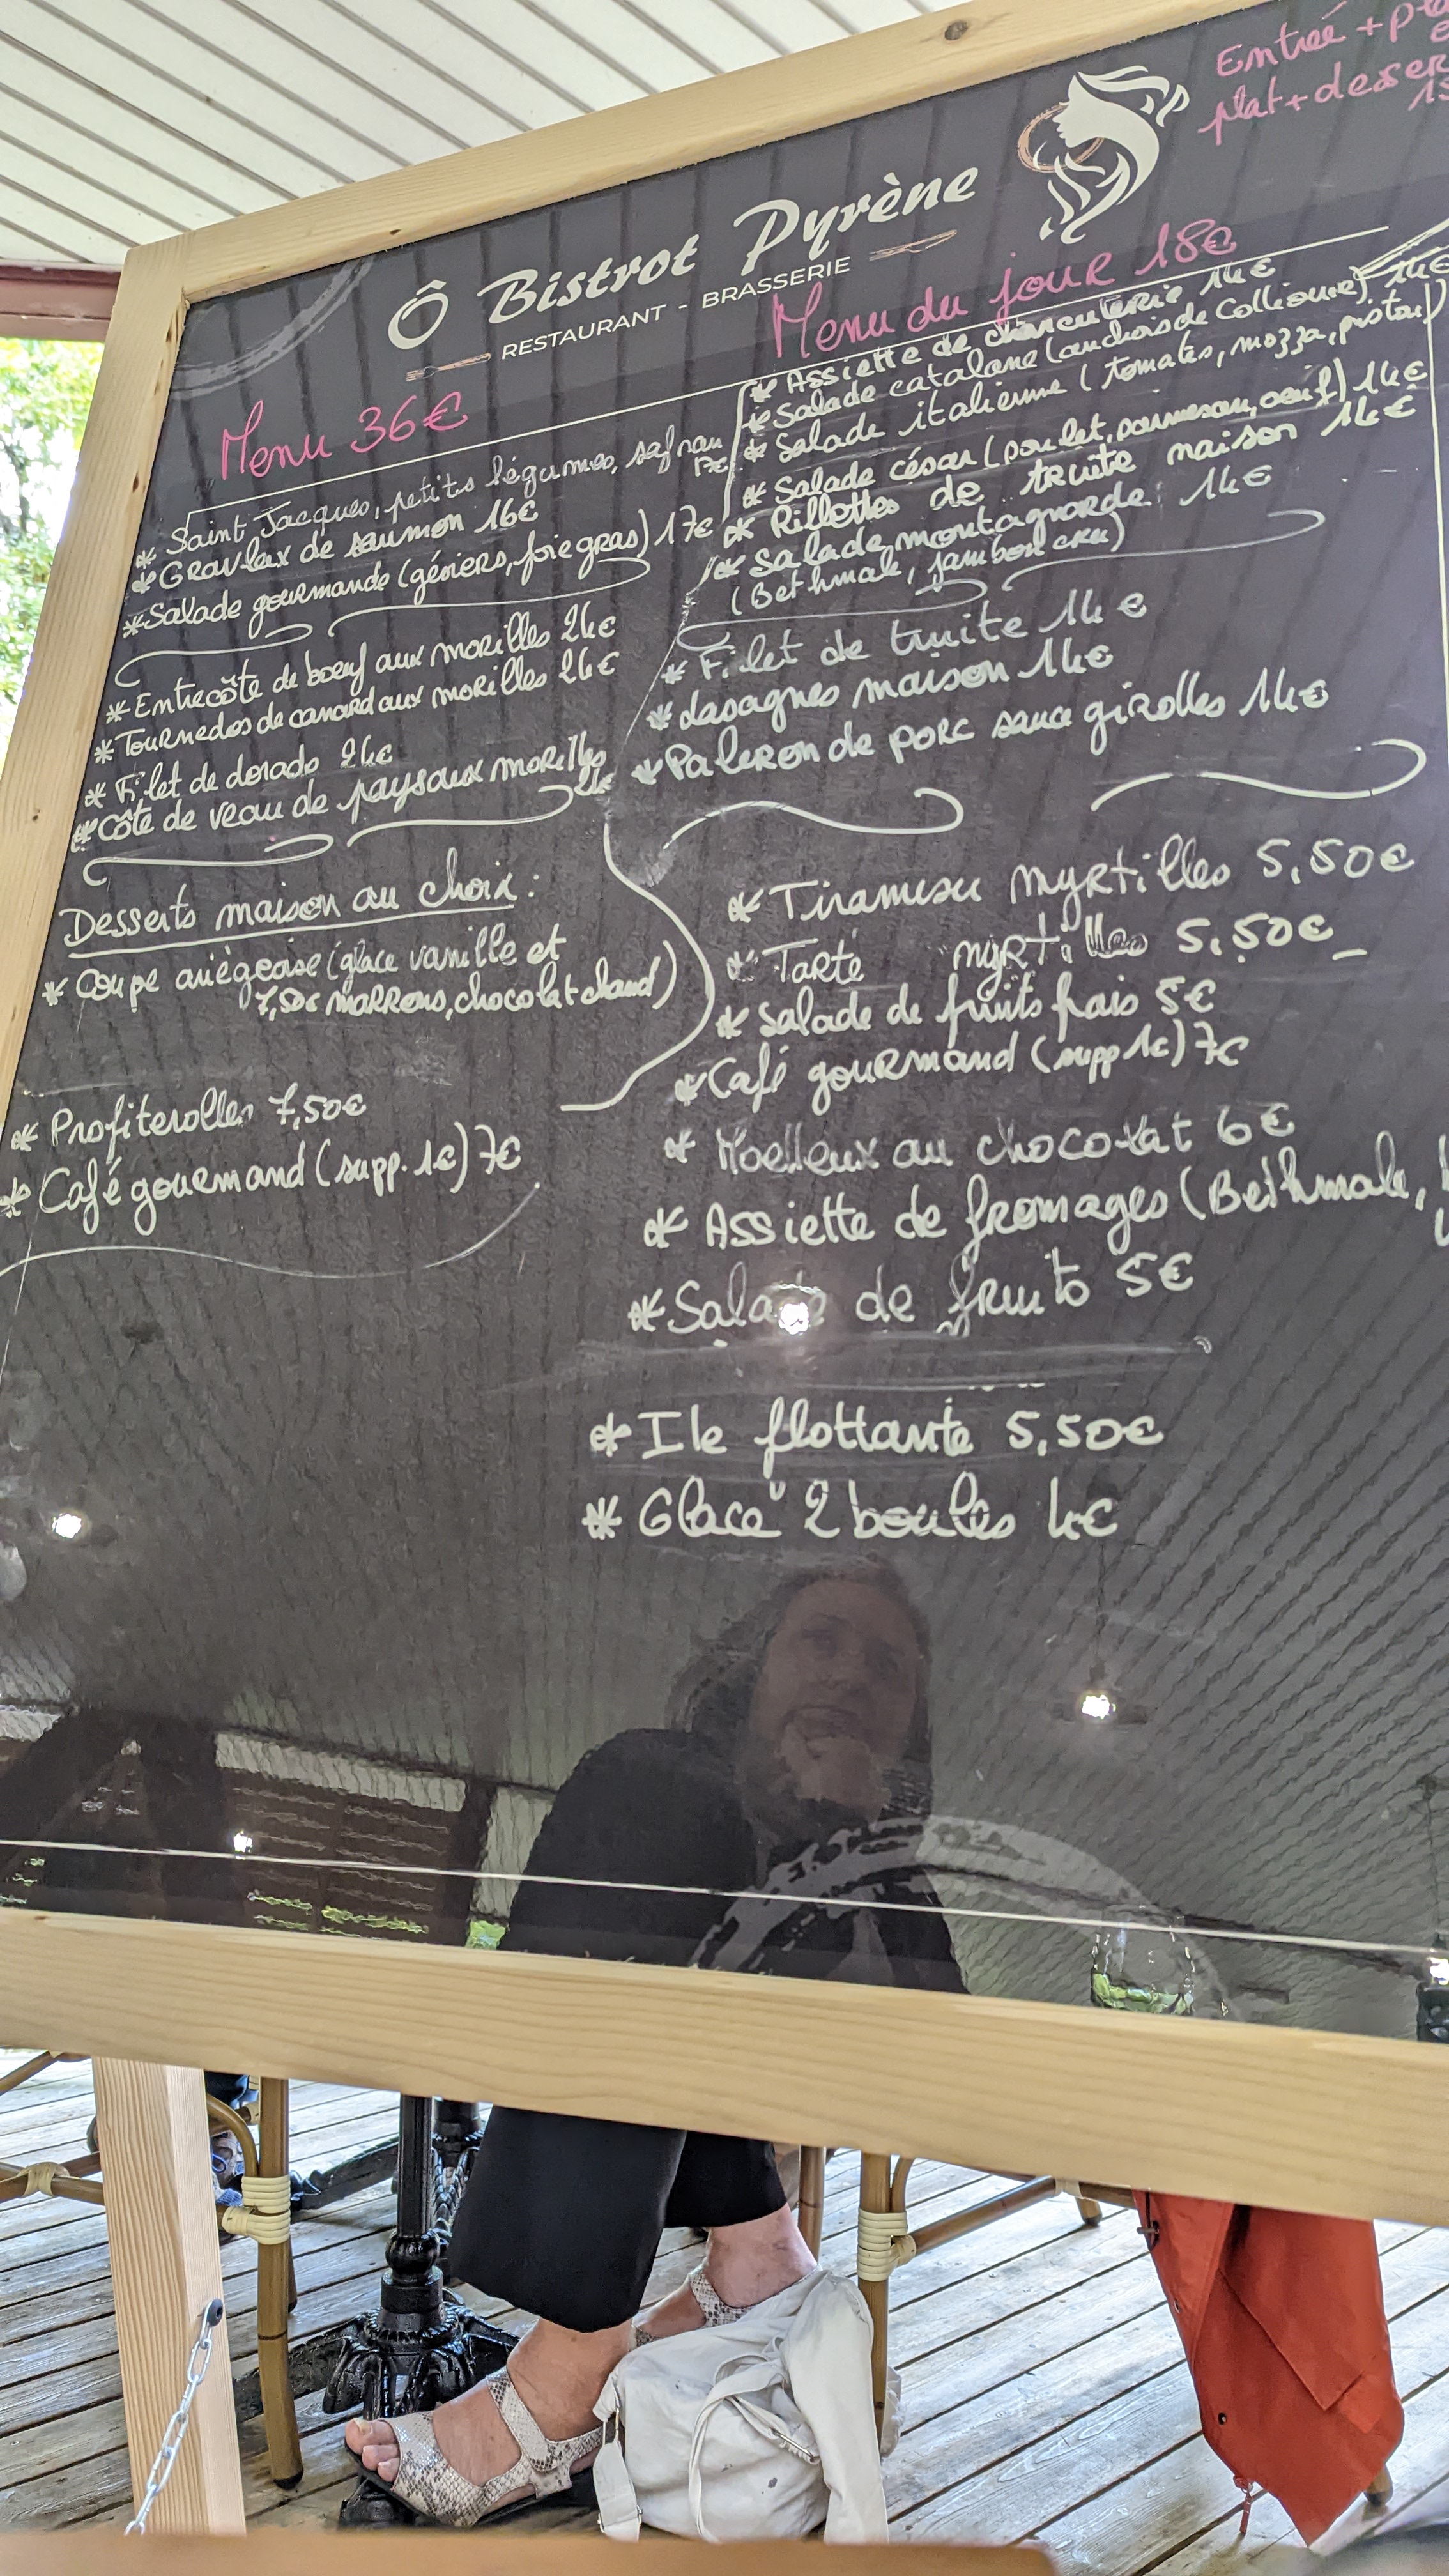 Entrée + pla
plat + desser
Ô Bistrot Pyrène
RESTAURANT - BRASSERIE
Menu 36€
* Saint Jacques, petits légumes, safran
17€
* Gravlax de saumon 16€
* Salade gourmande (gésiers, foie gras) 17€
* Entrecôte de boeuf aux morilles 24€
* Tournedos de canard aux morilles 24€
* Filet de dorade 24€
* Côte de veau de pays aux morilles
24€
Desserts maison au choix :
* Coupe ariégeoise (glace vanille et
7,50€ marrons, chocolat chaud)
* Profiterolles 7,50€
* Café gourmand (supp. 1€) 7€
Menu du jour 18€
* Assiette de charcuterie 14€
* Salade catalane (anchois de Collioure) 14€
* Salade italienne (tomates, mozza, pistou)
* Salade césar (poulet, parmesan, oeuf) 14€
* Rillettes de truite maison 14€
* Salade montagnarde 14€
(Bethmale, jambon cru)
* Filet de truite 14€
* Lasagnes maison 14€
* Paleron de porc sauce girolles 14€
* Tiramisu myrtilles 5,50€
* Tarte myrtilles 5,50€
* Salade de fruits frais 5€
* Café gourmand (supp 1€) 7€
* Moelleux au chocolat 6€
* Assiette de fromages (Bethmale,
* Salade de fruits 5€
* Ile flottante 5,50€
* Glace 2 boules 4€